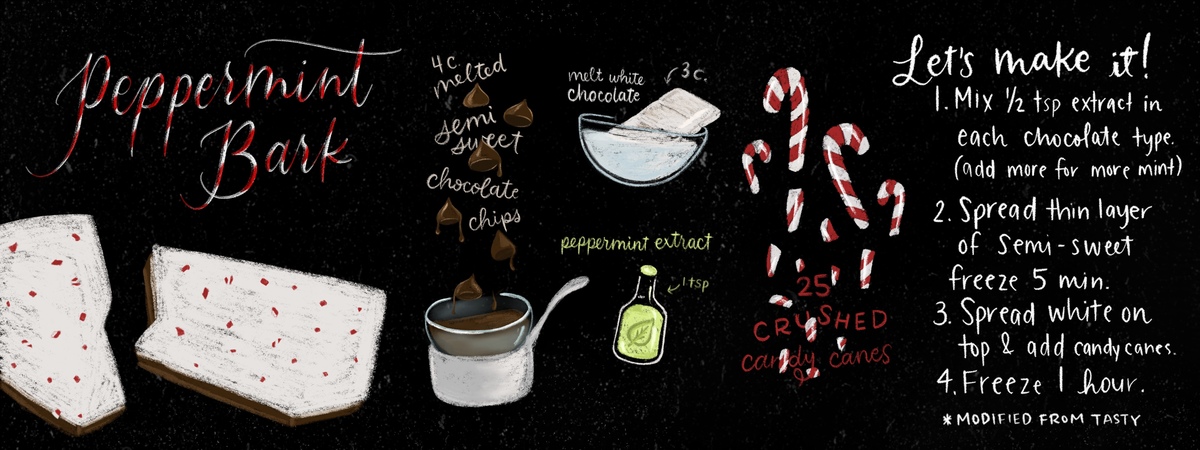 Peppermint
Bark
4 c
melted
semi
sweet
chocolate
chips
melt white
chocolate
3 c.
peppermint extract
1 tsp
25
CRUSHED
candy canes
Let's make it!
1. Mix 1/2 tsp extract in
each chocolate type.
(add more for more mint)
2. Spread thin layer
of Semi-sweet
freeze 5 min.
3. Spread white on
top & add candy canes.
4. Freeze 1 hour.
*MODIFIED FROM TASTY